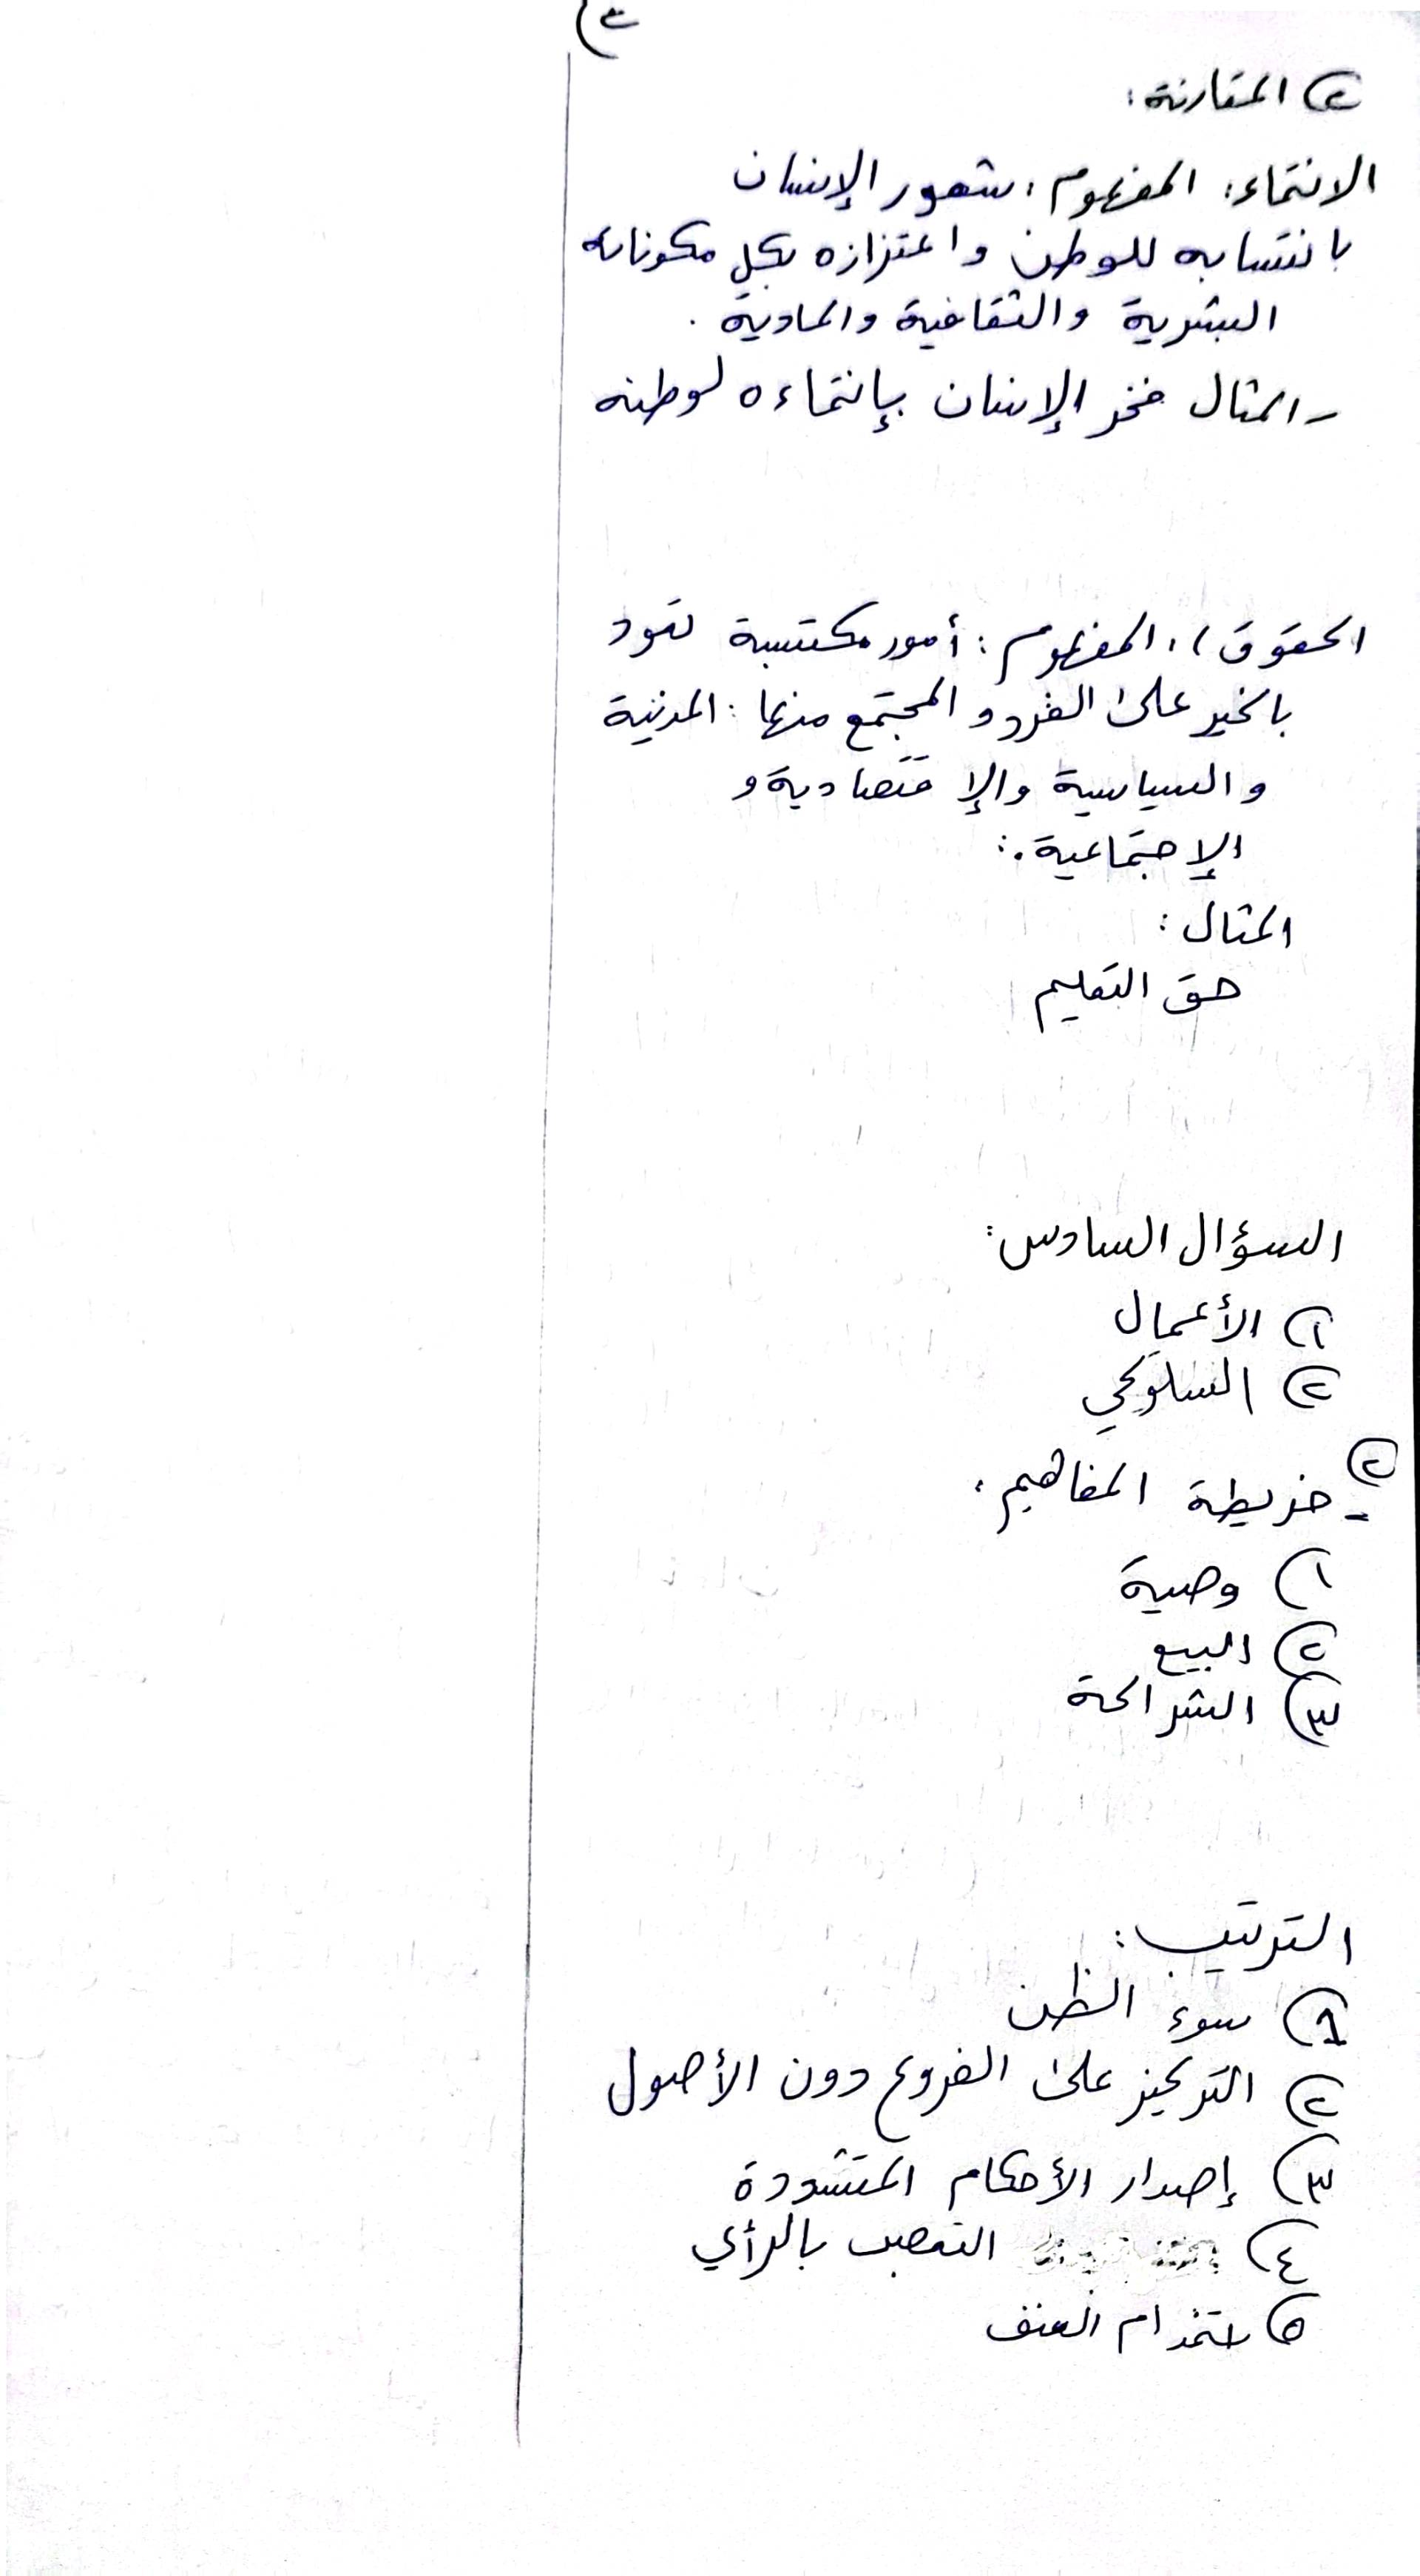 ٢) المقارنة:
الانتماء: المفهوم: شعور الإنسان
بانتسابه للوطن واعتزازه بكل مكوناته
البشرية والثقافية والمادية.
- المثال فخر الإنسان بإنتماءه لوطنه
الحقوق): المفهوم: أمور مكتسبة تعود
بالخير على الفرد والمجتمع منها: المدنية
والسياسية والإقتصادية و
الإجتماعية.:
المثال:
حق التعليم
السؤال السادس:
١) الأعمال
٢) السلوكي
٢
- خريطة المفاهيم:
١) وصية
٢) البيع
٣) الشراكة
الترتيب:
١) سوء الظن
٢) التركيز على الفروع دون الأصول
٣) إصدار الأحكام المتشددة
٤) التعصب بالرأي
٥) ستخدام العنف